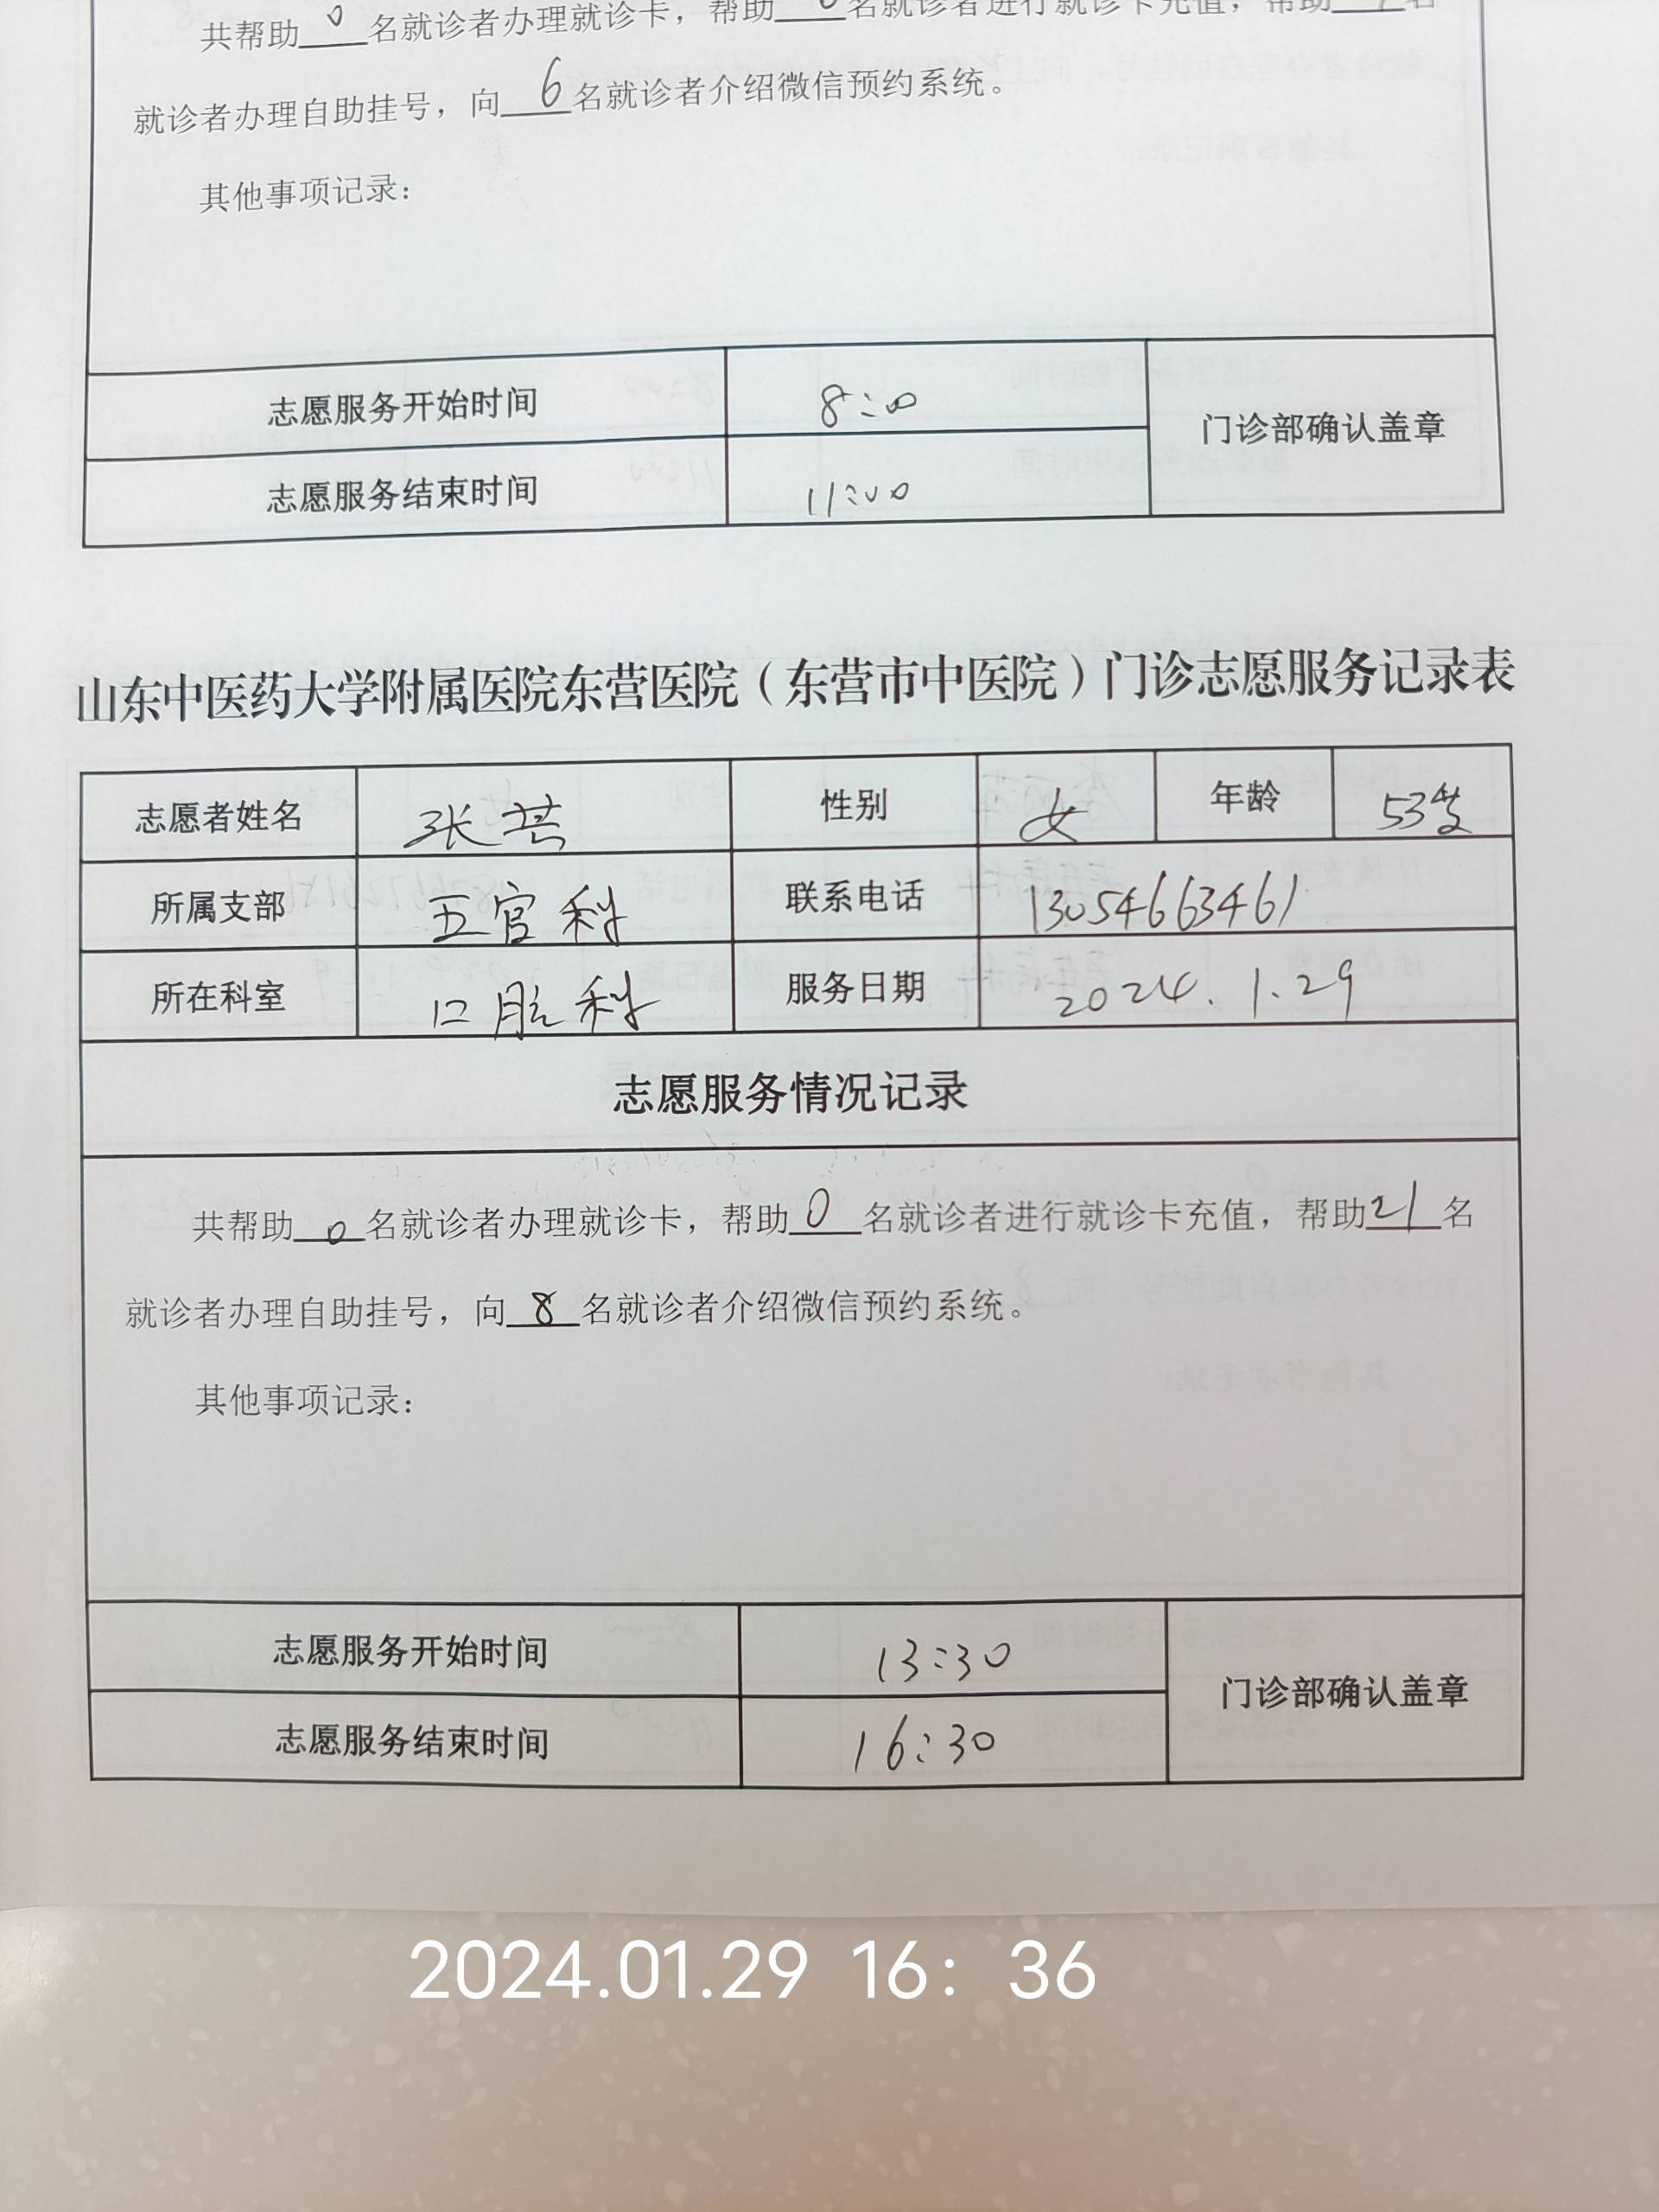 共帮助 0 名就诊者办理就诊卡，帮助 0 名就诊者进行就诊卡充值，帮助 名
就诊者办理自助挂号，向 6 名就诊者介绍微信预约系统。
其他事项记录：
志愿服务开始时间 8:00 门诊部确认盖章
志愿服务结束时间 11:00
山东中医药大学附属医院东营医院（东营市中医院）门诊志愿服务记录表
志愿者姓名 张 性别 女 年龄 53岁
所属支部 五官科 联系电话 13054663461
所在科室 口腔科 服务日期 2024.1.29
志愿服务情况记录
共帮助 0 名就诊者办理就诊卡，帮助 0 名就诊者进行就诊卡充值，帮助 21 名
就诊者办理自助挂号，向 8 名就诊者介绍微信预约系统。
其他事项记录：
志愿服务开始时间 13:30 门诊部确认盖章
志愿服务结束时间 16:30
2024.01.29 16：36